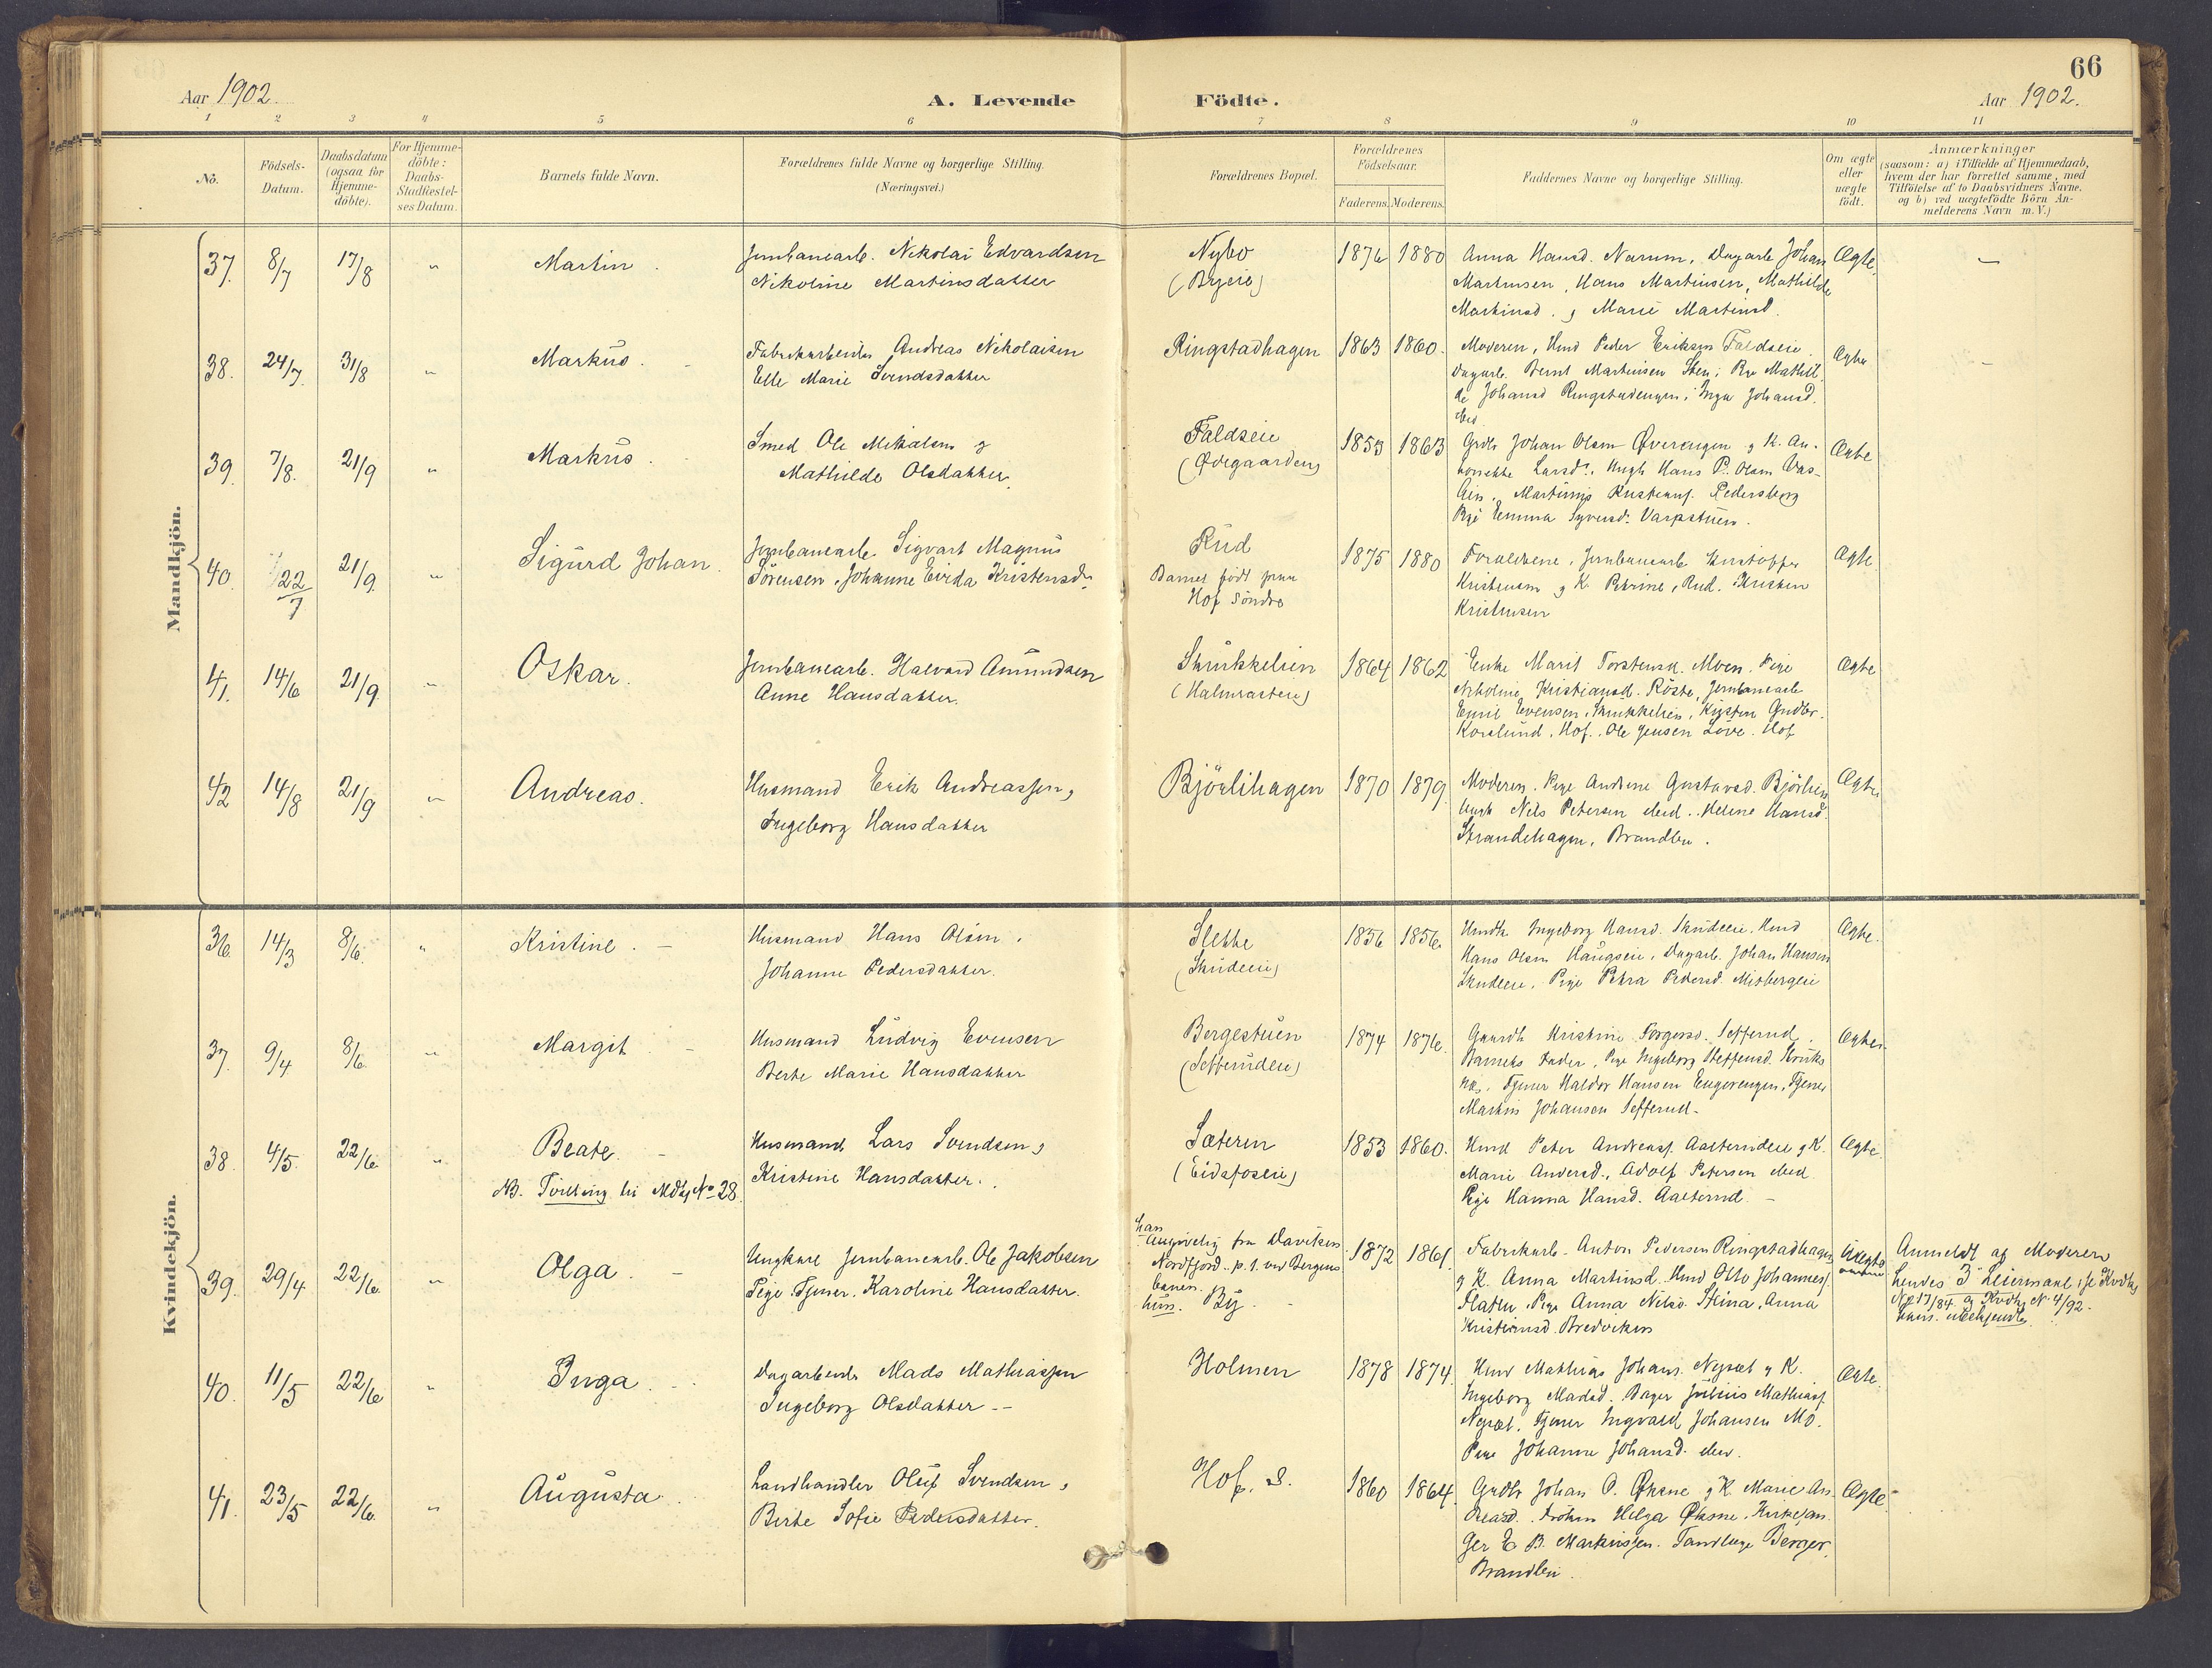 66
Aar 1902.
A. Levende Födte.
Aar 1902.
1 2 3 4 5 6 7 8 9 10 11
No.
Födsels-
Datum.
Daabsdatum
(ogsaa for
Hjemme-
döbte).
For Hjemme-
döbte:
Daabs-
Stadfæstel-
ses Datum.
Barnets fulde Navn.
Forældrenes fulde Navne og borgerlige Stilling.
(Næringsvei.)
Forældrenes Bopæl.
Forældrenes
Födselsaar.
Faderens. Moderens.
Faddernes Navne og borgerlige Stilling.
Om ægte
eller
uægte
födt.
Anmærkninger
(saasom: a) i Tilfælde af Hjemmedaab,
hvem der har forrettet samme, med
Tilföielse af to Daabsvidners Navne.
og b) ved uægtefödte Börn An-
melderens Navn m. V.)
Mandkjön.
37. 8/7 17/8 " Martin.
Jernbanearb. Nikolai Edvardsen
Nikoline Martinsdatter
Nybo
(Byeie)
1876 1880
Anna Hansd. Narum, Dagarb Johan
Martinsen, Hans Martinsen, Mathilde
Martinsd. og Marie Martinsd.
Ægte.
—
38. 24/7. 31/8 " Markus.
Fabrikarbeider Andreas Nikolaisen
Elle Marie Svendsdatter
Ringstadhagen
1863 1860.
Moderen, Hmd Peder Eriksen Faldseie.
Dagarb. Bernt Martinsen Sten; Pige Mathil
de Johansd Ringstadengen, Inga Johansd.
ibid
Ægte
39. 7/8. 21/9 " Markus.
Smed Ole Mikalsen og
Mathilde Olsdatter.
Faldseie
(Ödegaarden)
1855 1863
Grdbr Johan Olsen Øverengen og K. An-
tonette Larsdr., Ungk Hans P. Olsen
Pedersberg
Pige Emma Syversdr. Varpstuen.
Ægte
40. 22/7 21/9. " Sigurd Johan.
Jernbanearb. Sigvart Magnus
Sörensen, Johanne Kristensdr.
Rud
Barnet född paa
Hof Söndre
1875 1880
Forældrene, Jernbanearb Kristoffer
Kristensen og K. Petrine, Rud. Kristen
Kristensen
Ægte
41. 14/6 21/9 " Oskar.
Jernbanearb. Halvard Amundsen
Anne Hansdatter.
Skrukkelien
(Halmrasteie)
1864 1862
Enke Marit Torstensd. Moen. Pige
Nikoline Kristiansd. Röste, Jernbanearb
Emil Evensen, Skrukkelien, Kirsten Gudbr.
Korslund, Hof, Ole Jensen Löve. Hof
Ægte
42 14/8 21/9 " Andreas.
Husmand Erik Andreassen,
Ingeborg Hansdatter
Björlihagen
1870 1879.
Moderen. Pige Andrine Gustavsd. Björlien
Ungk Nils Petersen ibid.. Helene Hansd.
Strandehagen, Brandbu.
Ægte
Kvindekjön.
36. 14/3 8/6. " Kristine. —
Husmand Hans Olsen.
Johanne Pedersdatter.
Slette
(Skudeeie)
1856 1856.
Hmdk. Ingeborg Hansd. Skudeeie. Hmd
Hans Olsen Haugseie, Dagarb. Johan Hansen
Skudeeie, Pige Petra Pedersd. Misbergeie
Ægte.
37. 9/4 8/6. " Margit. —
Husmand Ludvig Evensen
Berte Marie Hansdatter
Bergestuen
(Sefferudeie)
1874 1876.
Gaardk Kristine Torgersd. Sefferud.
Barnets Fader, Pige Ingeborg Steffensd.
Tjener Haldor Hansen Engerengen, Tjener
Martin Johansen Sefferud.
Ægte.
38. 4/5. 22/6. " Beate. —
NB. Tvilling til Mdkj No 28.
Husmand Lars Svendsen,
Kristine Hansdatter.
Sæteren
(Eidsfoseie)
1853 1860.
Hmd Peter Andreass. Aaslerudeie og K.
Marie Andersd., Adolf Petersen ibid
Pige Hanna Hansd. Aaslerud. —
Ægte.
39. 29/4. 22/6. " Olga. —
Ungkarl Jernbanearb. Ole Jakobsen
Pige Tjener. Karoline Hansdatter.
han
angivelig fra Daviken
Nordfjord. p. t. ved Bergens
banen.
hun. By. —
1872 1861.
Fabrikarb. Anton Pedersen Ringstadhagen
og K. Anna Martinsd. Hmd Otto Johanness.
Flaten, Pige Anna Nilsd. Skina, Anna
Kristiansd. Bredviken
Uægte
Anmeldt af Moderen
hendes 3' Leiermaal; se Kvdkj
No 17/84 og Kvdkj No 4/92.
hans. ubekjendt.
40. 11/5 22/6 " Inga. —
Dagarbeider Mads Mathiassen
Ingeborg Olsdatter. —
Holmen
1878 1874.
Hmd Mathias Johans. Nysæt og K.
Ingeborg Madsd. Bager Julius Mathiass.
Nysæt. Tjener Ingvald Johansen Mo.
Pige Johanne Johansd. ibid.
Ægte.
41. 23/5 22/6. " Augusta.
Landhandler Oluf Svendsen,
Berte Sofie Pedersdatter.
Hof. S.
1860 1864.
Grdbr Johan P. Øksne og K. Marie An-
dreasd. Fröken Helga Øksne. Kirkesan-
ger E. B. Martinssen. Tandlæge Berger,
Brandbu.
Ægte.